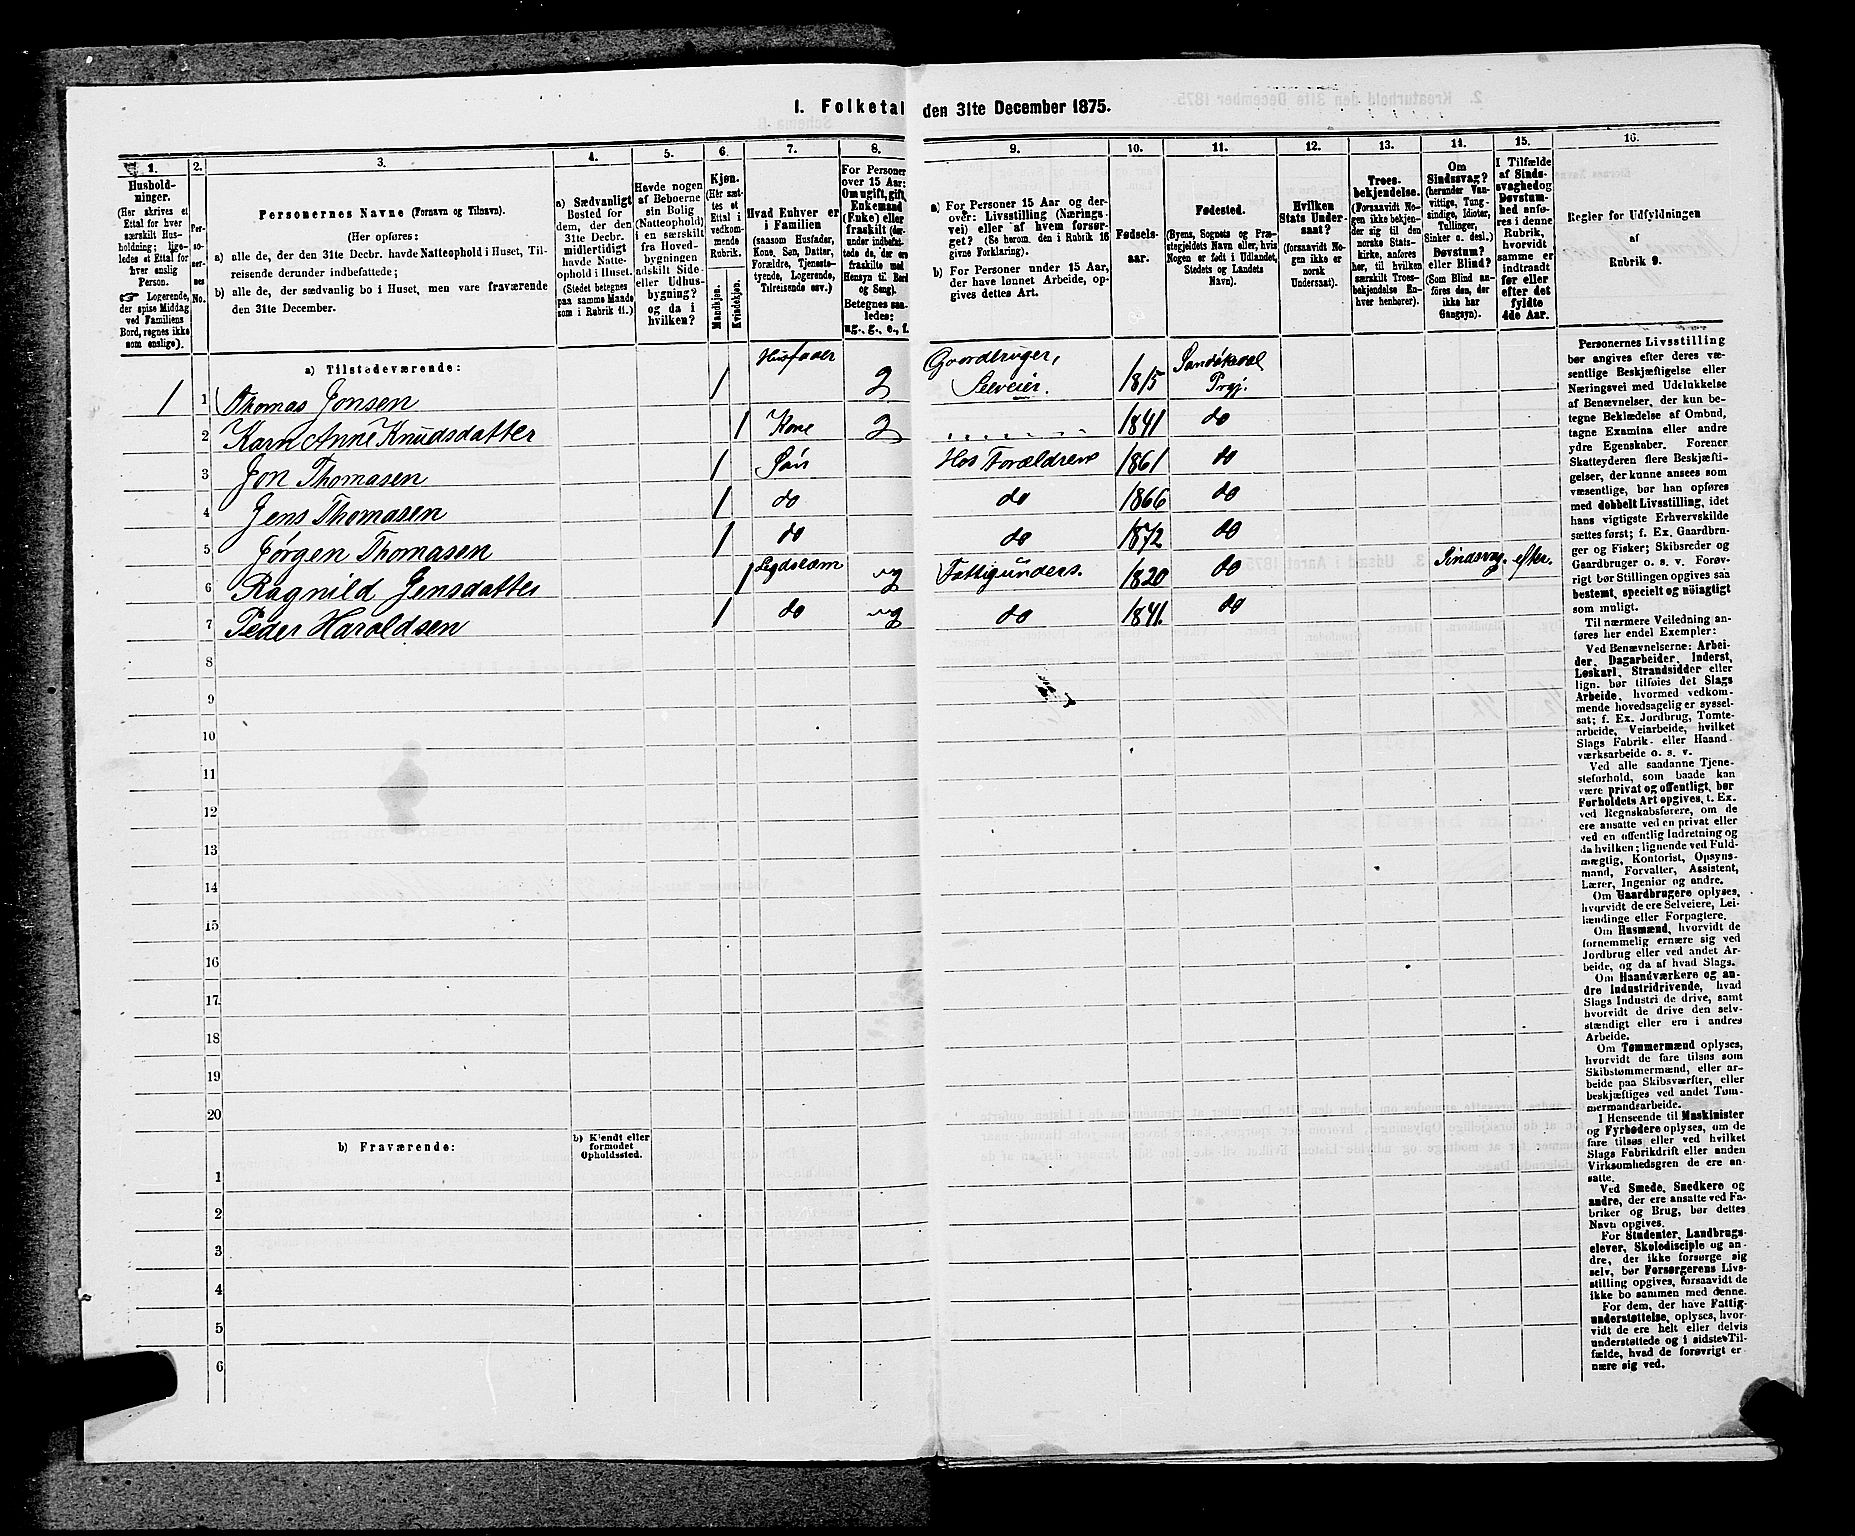 1. Folketal den 31te December 1875.
1. 2. 3. 4. 5. 6. 7. 8. 9. 10. 11. 12. 13. 14. 15. 16.
Hushold-
ninger.
(Her skrives et
Ettal for hver
særskilt Hus-
holdning; lige-
ledes et Ettal for
hver enslig
Person.
☞ Logerende,
der spise Middag
ved Familiens
Bord, regnes ikke
som enslige).
Per-
so-
ner-
nes
No.
Personernes Navne (Fornavn og Tilnavn).
(Her opføres:
a) alle de, der den 31te Decbr. havde Natteophold i Huset, Til-
reisende derunder indbefattede;
b) alle de, der sædvanlig bo i Huset, men vare fraværende
den 31te December.
a) Sædvanligt
Bosted for
dem, der den
31te Decbr.
midlertidigt
havde Natte-
ophold i Huset.
(Stedet betegnes
paa samme Maade
som i Rubrik 11.)
Havde nogen
af Beboerne
sin Bolig
(Natteophold)
i en særskilt
fra Hoved-
bygningen
adskilt Side-
eller Udhus-
bygning?
og da i
hvilken?
Kjøn.
(Her sæt-
tes et
Ettal i
vedkom-
mende
Rubrik.
Mandkjøn.
Kvindekjøn.
Hvad Enhver er
i Familien
(saasom Husfader,
Kone, Søn, Datter,
Forældre, Tjeneste-
tyende, Logerende,
Tilreisende osv.)
For Personer
over 15 Aar:
Om ugift, gift,
Enkemand
(Enke) eller
fraskilt (der-
under indbefat-
tede de, der ere
fraskilte med
Hensyn til Bord
og Seng).
Betegnes saa-
ledes:
ug., g., e., f.
a) For Personer 15 Aar og der-
over: Livsstilling (Nærings-
vei) eller af hvem forsør-
get? (Se herom. den i Rubrik 16
givne Forklaring).
b) For Personer under 15 Aar,
der have lønnet Arbeide, op-
gives dettes Art.
Fødsels-
aar.
Fødested.
(Byens, Sognets og Præ-
stegjeldets Navn eller, hvis
Nogen er født i Udlandet,
Stedets og Landets
Navn).
Hvilken
Stats Under-
saat?
(forsaavidt No-
gen ikke er
norsk
Undersaat).
Troes-
bekjendelse.
(Forsaavidt No-
gen ikke bekjen-
der sig til den
norske Stats-
kirke, anføres
her, til hvilken
særskilt Troes-
bekjendelse En-
hver henhører).
Om
Sindssvag?
(herunder Van-
vittige, Tung-
sindige, Idioter,
Tullinger,
Sinker o. desl.)
Døvstum?
eller Blind?
(Som Blind an-
føres den, der
ikke har
Gangsyn).
I Tilfælde
af Sinds-
svaghed og
Døvstum-
hed anfø-
res i denne
Rubrik,
hvorvidt
samme er
indtraadt
før eller
efter det
fyldte
4de Aar.
Regler for Udfyldningen
af
Rubrik 9.
a) Tilstedeværende:
1 1 Thomas Jonsen 1 Husfader 2 Gaardbruger, Selveier. 1815 Sandøkedal Prgj.
2 Karn Anne Knudsdatter 1 Kone 2 1841 do
3 Jon Thomasen 1 Søn Hos Forældrene 1861 do
4 Jens Thomasen 1 do do 1866 do
5 Jørgen Thomasen 1 do do 1872 do
6 Ragnild Jensdatter 1 ug Fattigunders. 1820 do Sindsvag. efter.
7 Peder Haroldsen 1 do ug do 1841. do
8
9
10
11
12
13
14
15
16
17
18
19
20
b) Fraværende:
b) Kjendt eller
formodet
Opholdssted.
1
2
3
4
5
6
Personernes Livsstilling
bør angives efter deres væ-
sentlige Beskjæftigelse eller
Næringsvei med Udelukkelse
af Benævnelser, der kun be-
tegne Beklædelse af Ombud,
tagne Examina eller andre
ydre Egenskaber. Forener
Skatteyderen flere Beskjæfti-
gelser, der kunne ansees som
væsentlige, bør han opføres
med dobbelt Livsstilling, idet
hans vigtigste Erhvervskilde
sættes først; f. Ex. Gaardbru-
ger og Fisker; Skibsreder og
Gaardbruger o. s. v. Forøv-
rigt bør Stillingen opgives saa
bestemt, specielt og nøiagtigt
som muligt.
Til nærmere Veiledning an-
føres her endel Exempler:
Ved Benævnelserne: Arbei-
der, Dagarbeider, Inderst,
Løskarl, Strandsidder eller
lign. bør tilføies det Slags
Arbeide, hvormed vedkom-
mende hovedsagelig er syssel-
sat; f. Ex. Jordbrug, Tomte-
arbeide, Veiarbeide, hvilket
Slags Fabrik- eller Haand-
værksarbeide o. s. v.
Ved alle saadanne Tjene-
steforhold, som baade kan
være privat og offentligt, bør
Forholdets Art opgives, t. Ex.
ved Regnskabsførere, om de
ere ansatte ved en privat eller
ved en offentlig Indretning og
da hvilken; lignende ved Fuld-
mægtig, Kontorist, Opsyns-
mand, Forvalter, Assistent,
Lærer, Ingeniør og andre.
Om Gaardbrugere oplyses,
hvorvidt de ere Selveiere, Lei-
lændinge eller Forpagtere.
Om Husmænd, hvorvidt de
fornemmelig ernære sig ved
Jordbrug eller ved andet Ar-
beide, og da af hvad Slags.
Om Haandværkere og an-
dre Industridrivende, hvad
Slags Industri de drive, samt
hvorvidt de drive den selv-
stændigt eller ere i andres
Arbeide.
Om Tømmermænd oplyses,
hvorvidt de fare tilsøs som
Skibstømmermænd, eller ar-
beide paa Skibsværfter, eller
beskjæftiges ved andet Tøm-
mermandsarbeide.
I Henseende til Maskinister
og Fyrbødere oplyses, om de
fare tilsøs eller ved hvilket
Slags Fabrikdrift eller anden
Virksomhedsgren de ere an-
satte.
Ved Smede, Snedkere og
andre, der ere ansatte ved Fa-
briker og Brug, bør dettes
Navn opgives.
For Studenter, Landbrugs-
elever, Skoledisciple og an-
dre, der ikke forsørge sig
selv, bør Forsørgerens Livs-
stilling opgives, forsaavidt de
ikke bo sammen med denne.
For dem, der have Fattig-
understøttelse, oplyses, hvor-
vidt de ere helt eller delvis
understøttede og i sidste Til-
fælde, hvad de forøvrigt er-
nære sig ved.